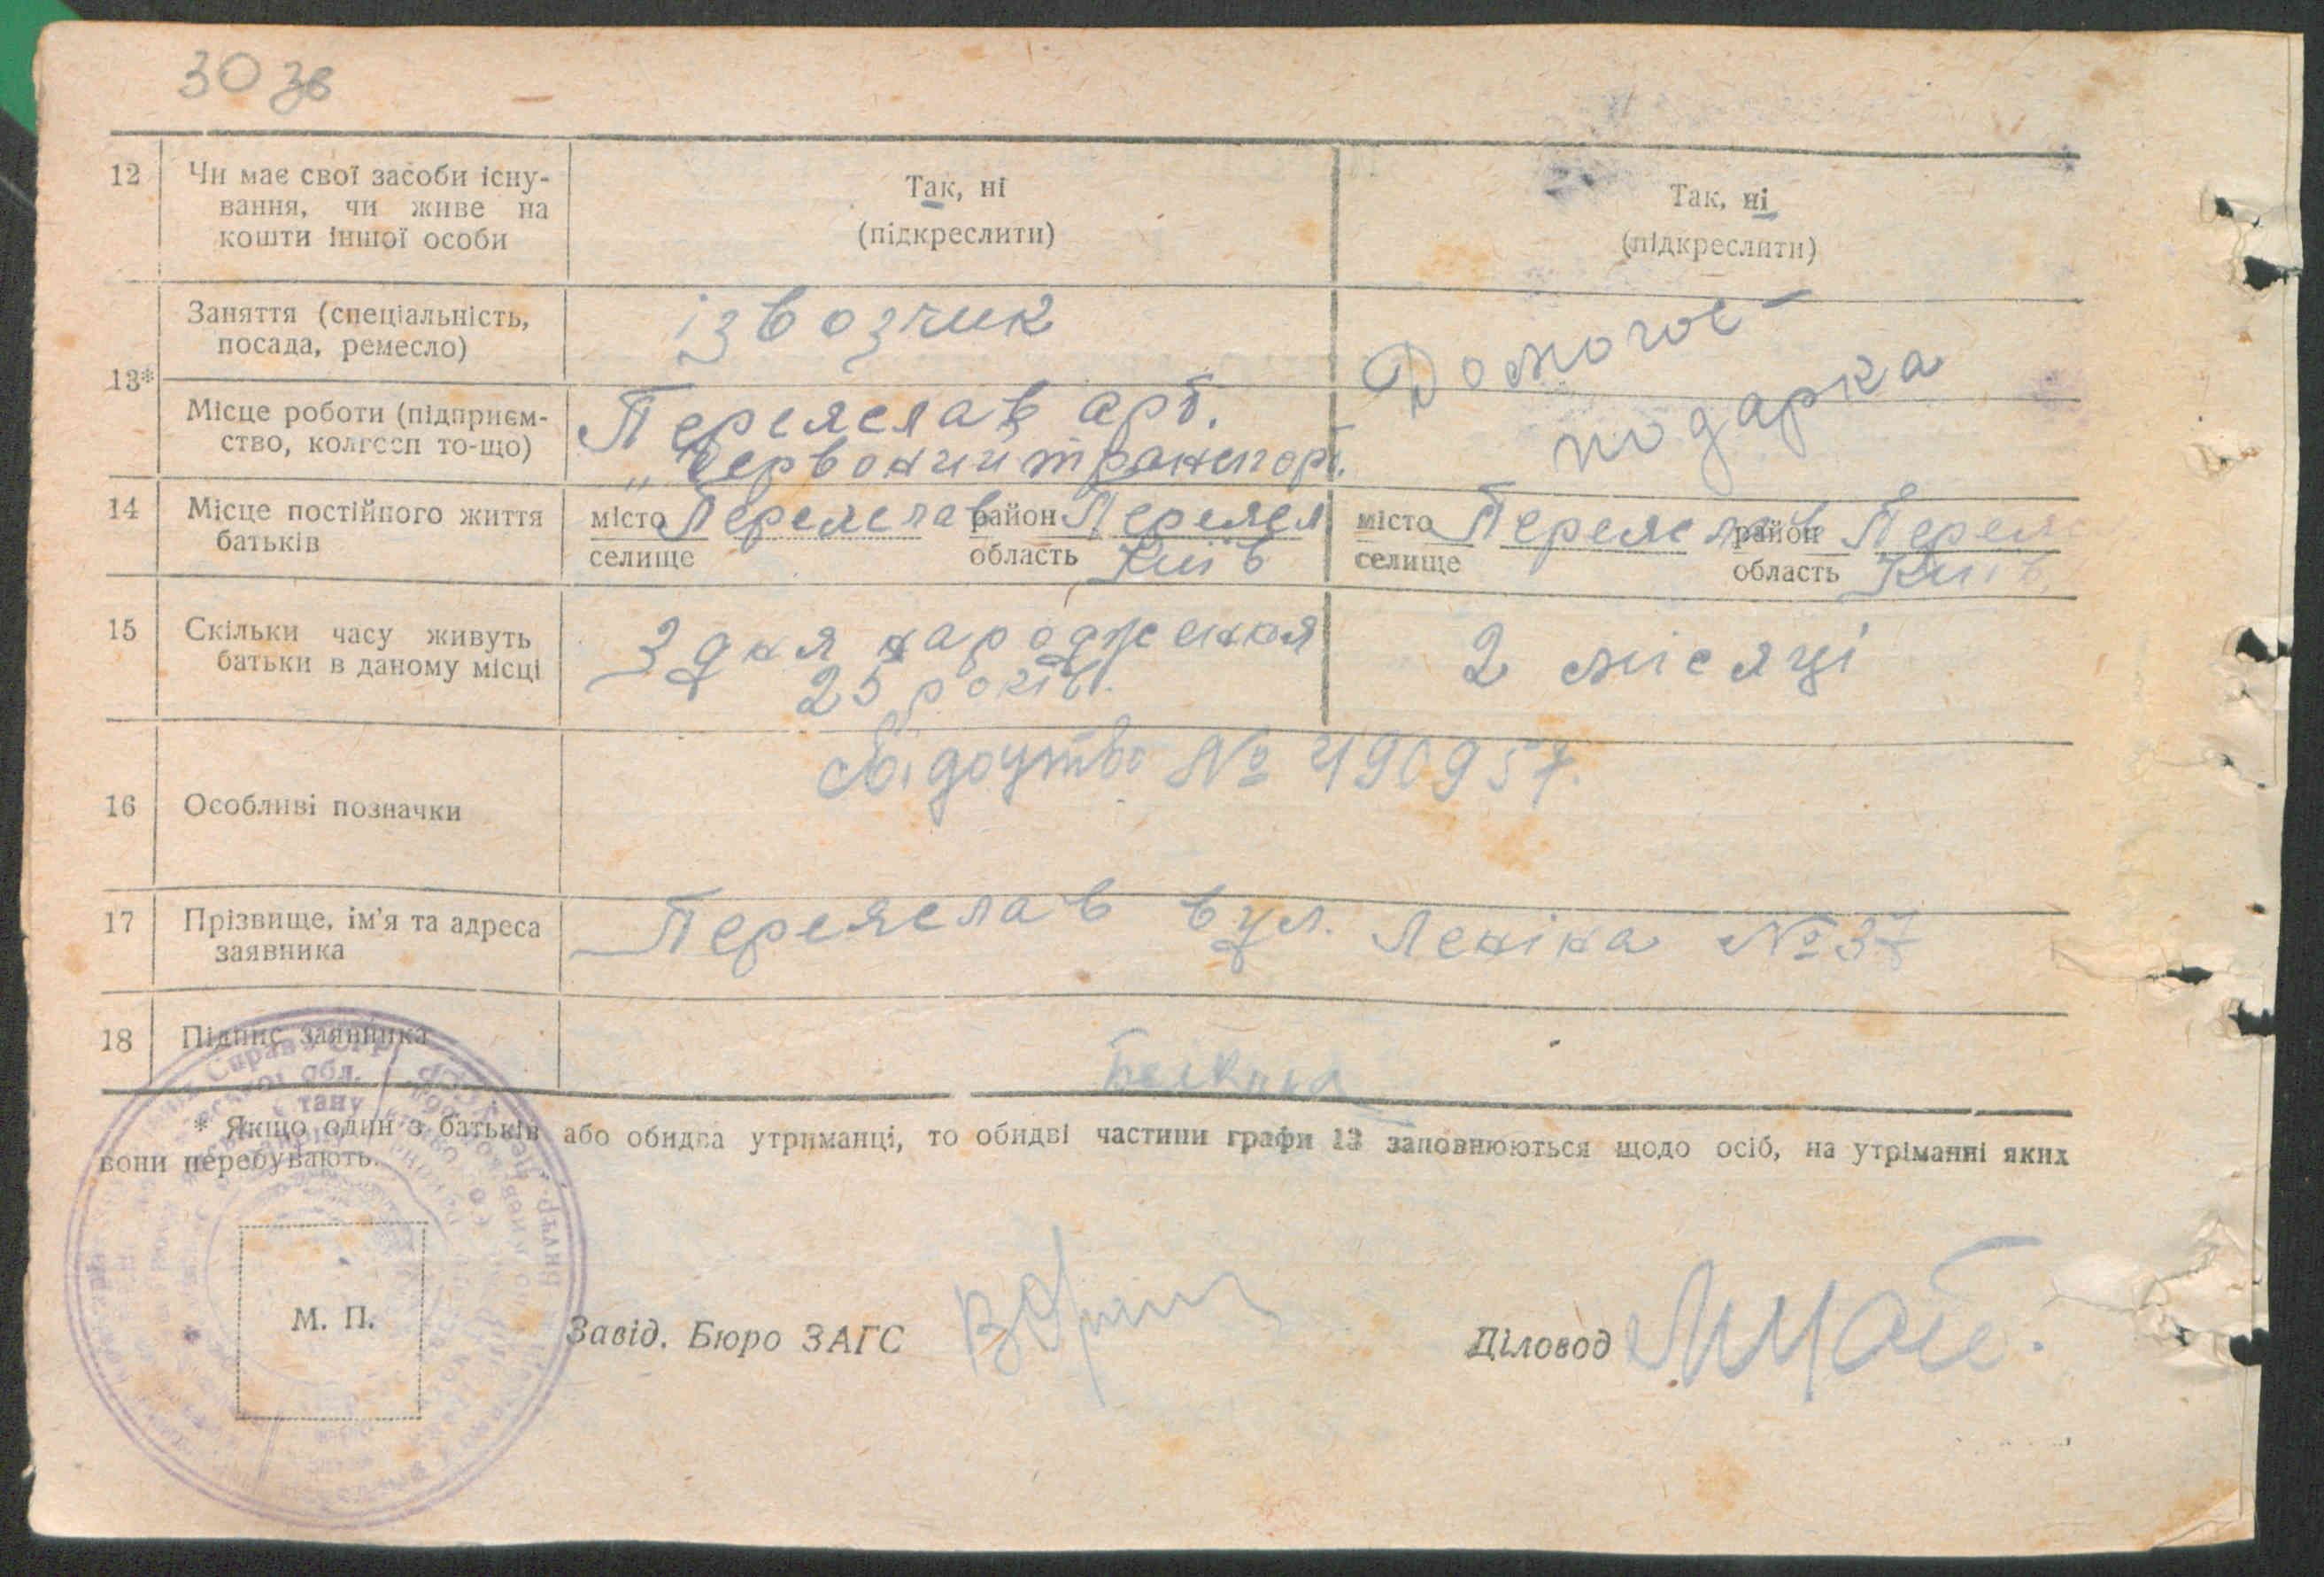 30 зв
12 Чи має свої засоби існу-
вання, чи живе на
кошти іншої особи
Так, ні
(підкреслити)
Так, ні
(підкреслити)
13*
Заняття (спеціальність,
посада, ремесло)
ізвозчик
Домогос-
подарка
Місце роботи (підприєм-
ство, колгосп то-що)
Переяслав арт.
„Червоний транспорт.
14 Місце постійного життя
батьків
місто Переяслав район Переясл
селище область Київ
місто Переяслав район Переяс
селище область Київ
15 Скільки часу живуть
батьки в даному місці
З дня народження
25 років.
2 місяці
16 Особливі позначки
Свідоцтво № 490957.
17 Прізвище, ім'я та адреса
заявника
Переяслав вул. Леніна № 37
18 Підпис заявника
* Якщо один з батьків або обидва утриманці, то обидві частини графи 13 заповнюються щодо осіб, на утріманні яких
вони перебувають.
М. П.
Завід. Бюро ЗАГС
Діловод